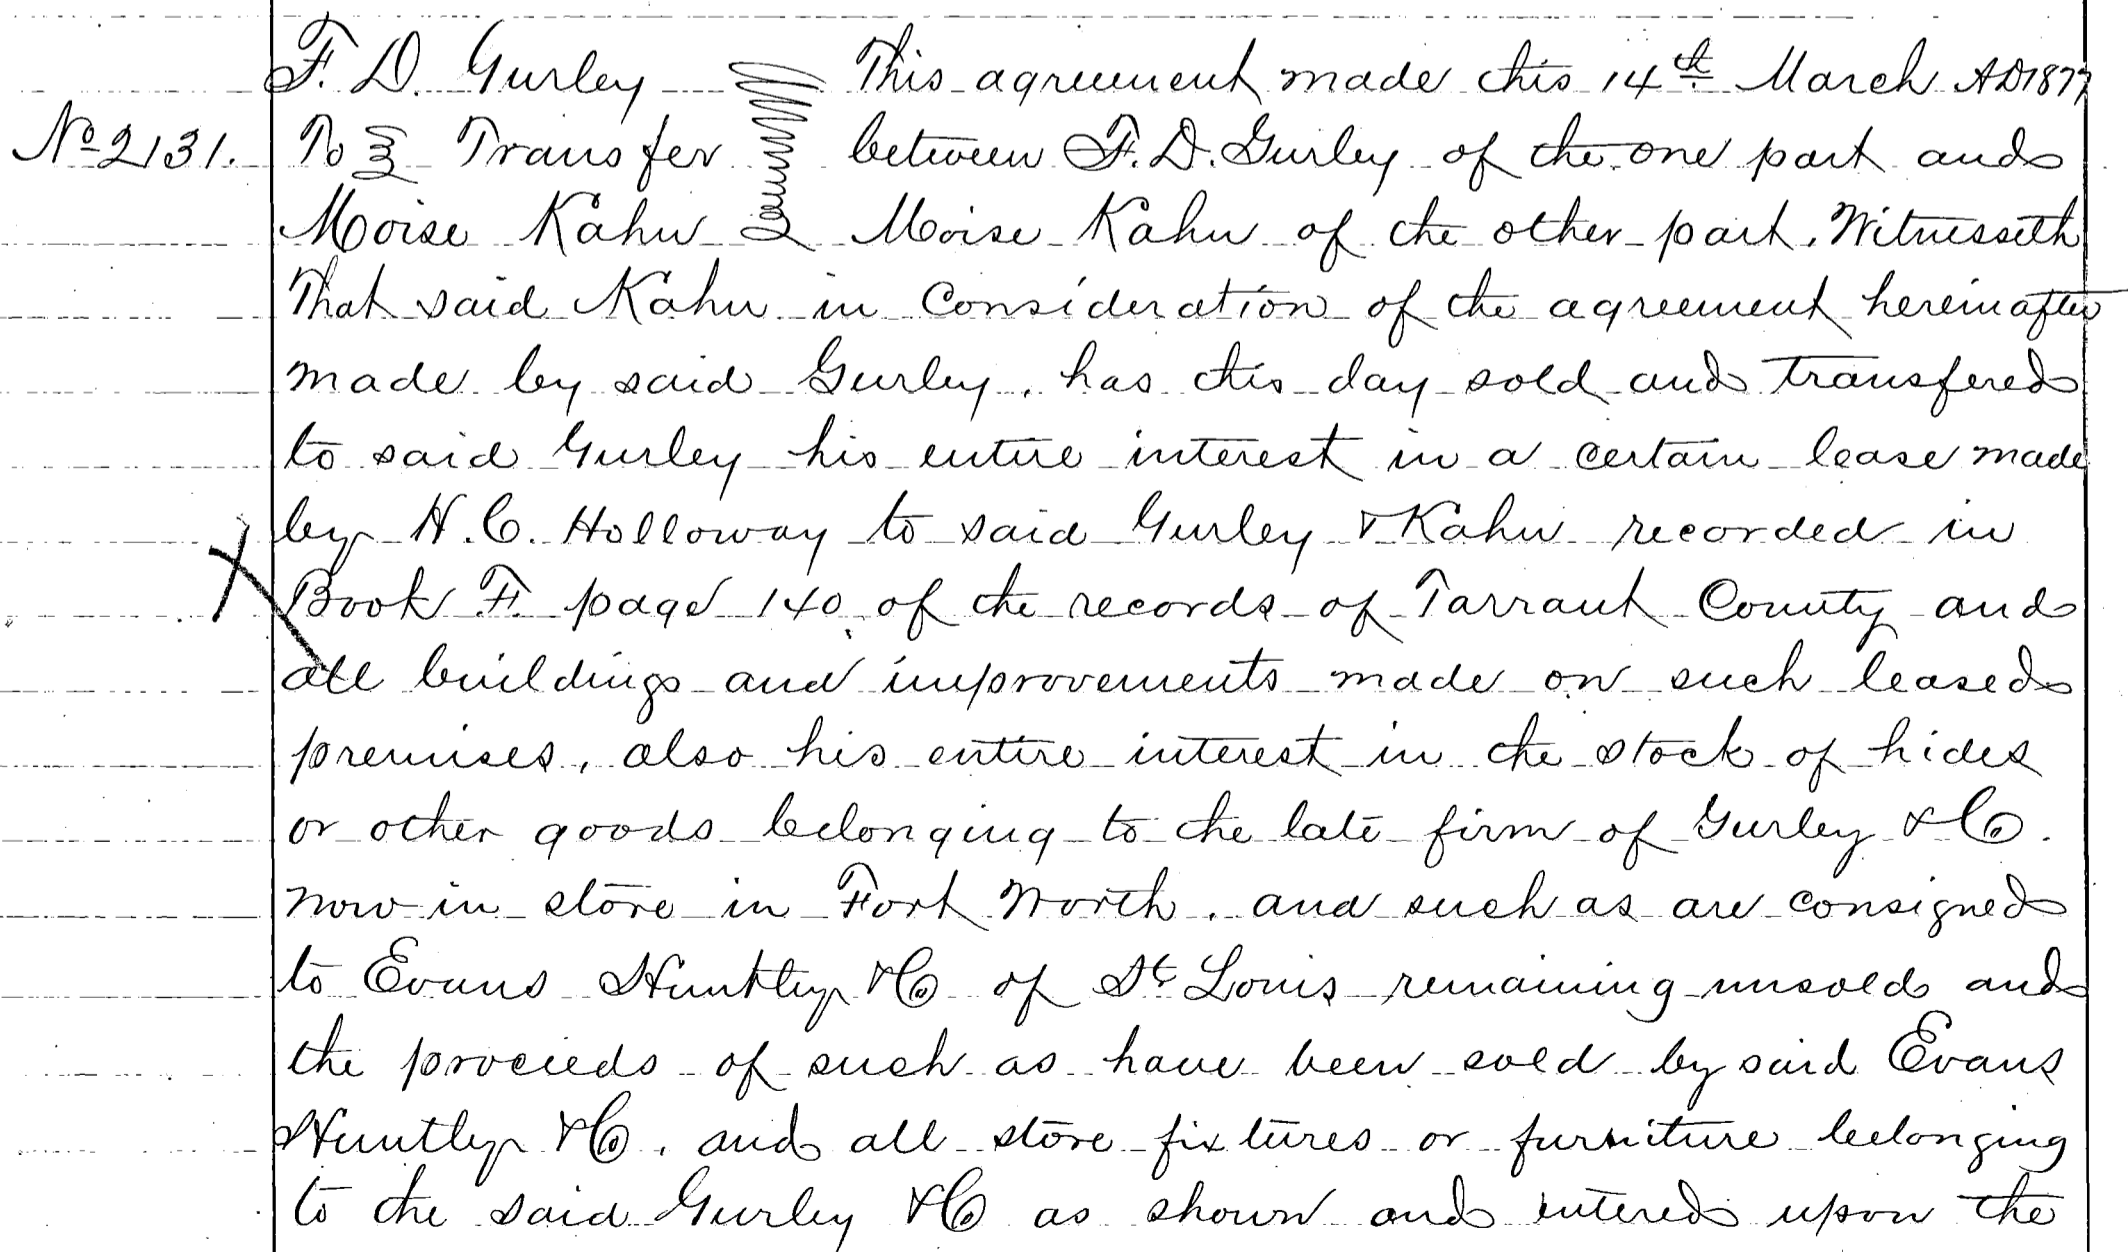 F. D. Gurley This agreement made this 14th March AD1877
No 2131. To } Transfer between F. D. Gurley of the one part and
Moise Kahn Moise Kahn of the other part. Witnesseth
That said Kahn in Consideration of the agreement hereinafter
made by said Gurley, has this day sold and transfered
to said Gurley his entire interest in a certain lease made
by H. C. Holloway to said Gurley & Kahn recorded in
Book F. page 140 of the records of Tarrant County and
all buildings and improvements made on such leased
premises, also his entire interest in the stock of hides
or other goods belonging to the late firm of Gurley & Co.
now in store in Fort Worth, and such as are consigned
to Evans Huntley & Co of St Louis remaining unsold and
the proceeds of such as have been sold by said Evans
Huntley & Co, and all store fixtures or furniture belonging
to the said Gurley & Co as shown and entered upon the